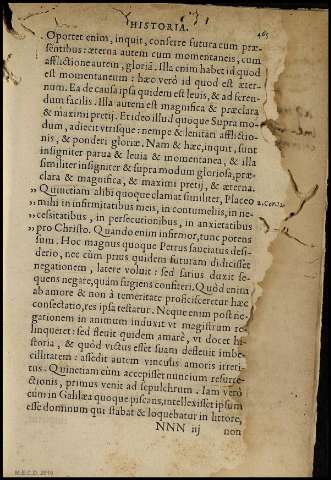 HISTORIA.
465
Oportet enim, inquit, conferre futura cum præ-
sentibus: æterna autem cum momentaneis, cum
afflictione autem, gloriā. Illa enim habet id quod
est momentaneum: hæc verò id quod est æter-
num. Ea de causa ipsa quidem est leuis, & ad feren-
dum facilis. Illa autem est magnifica & præclara
& maximi pretij. Et ideo illud quoque Supra mo-
dum, adiecit vtrisque: nempe & lenitati afflictio-
nis, & ponderi gloriæ. Nam & hæc, inquit, sunt
insigniter parua & leuia & momentanea, & illa
similiter insigniter & supra modum gloriosa, præ-
clara & magnifica, & maximi pretij, & æterna.
„ Quinetiam alibi quoque clamat similiter, Placeo
2. Cor. 12.
„ mihi in infirmitatibus meis, in contumeliis, in ne-
„ cessitatibus, in persecutionibus, in anxietatibus
„ pro Christo. Quando enim infirmor, tunc potens
sum. Hoc magnus quoque Petrus sauciatus desi-
derio, nec cùm priùs quidem futuram didicisset
negationem, latere voluit: sed satius duxit se-
quens negare, quàm fugiens confiteri. Quòd enim
ab amore & non à temeritate proficisceretur hæc
consectatio, res ipsa testatur. Neque enim post ne-
gationem in animum induxit vt magistrum re-
linqueret: sed fleuit quidem amarè, vt docet hi-
storia, & quòd victus esset suam defleuit imbe-
cillitatem: assedit autem vinculis amoris irreti-
tus. Quinetiam cùm accepisset nuncium resurre-
ctionis, primus venit ad sepulchrum. Iam verò
cùm in Galilæa quoque piscans, intellexisset ipsum
esse dominum qui stabat & loquebatur in littore,
NNN iij
non
M.E.C.D. 2016